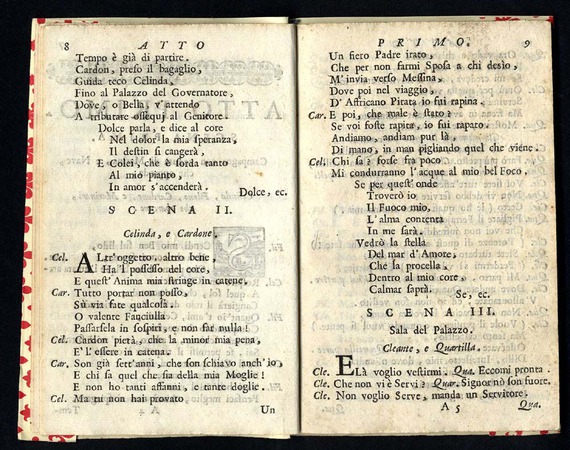 8 ATTO
Tempo è già di partire.
Cardon, preso il bagaglio,
Guida teco Celinda,
Fino al Palazzo del Governatore,
Dove, o Bella, v'attendo
A tributare ossequj al Genitore.
Dolce parla, e dice al core
Nel dolor la mia speranza,
Il destin si cangerà,
E Colei, che è sorda tanto
Al mio pianto,
In amor s'accenderà.
Dolce, ec.
SCENA II.
Celinda, e Cardone.
Cel. ALtr'oggetto, altro bene,
Ha 'l possesso del core,
E quest' Anima mia stringe in catene.
Car. Tutto portar non posso,
Sù via fate qualcosa.
O valente Fanciulla
Passarsela in sospiri, e non far nulla!
Cel. Cardon pietà, che la minor mia pena,
E' l' essere in catena.
Car. Son già sett'anni, che son schiavo anch'io,
E chi sa quel che sia della mia Moglie!
E non ho tanti affanni, e tante doglie.
Cel. Ma tu non hai provato
A 4 Un
PRIMO. 9
Un fiero Padre irato,
Che per non farmi Sposa a chi desio,
M' invia verso Messina,
Dove poi nel viaggio,
D' Affricano Pirata io fui rapina.
Car. E poi, che male è stato?
Se voi foste rapita, io fui rapato.
Andiamo, andiam pur là,
Di mano, in man pigliando quel che viene.
Cel. Chi sa? forse fra poco
Mi condurranno l'acque al mio bel Foco.
Se per quest' onde
Troverò io
Il Fuoco mio,
L' alma contenta
In me sarà.
Vedrò la stella
Del mar d' Amore,
Che la procella,
Dentro al mio core,
Calmar saprà.
Se, ec.
SCENA III.
Sala del Palazzo.
Cleante, e Quartilla.
Cle. ELà voglio vestirmi. Qua. Eccomi pronta.
Cle. Che non vi è Servi? Quar. Signor nò son fuore.
Cle. Non voglio Serve, manda un Servitore.
A 5 Qua.